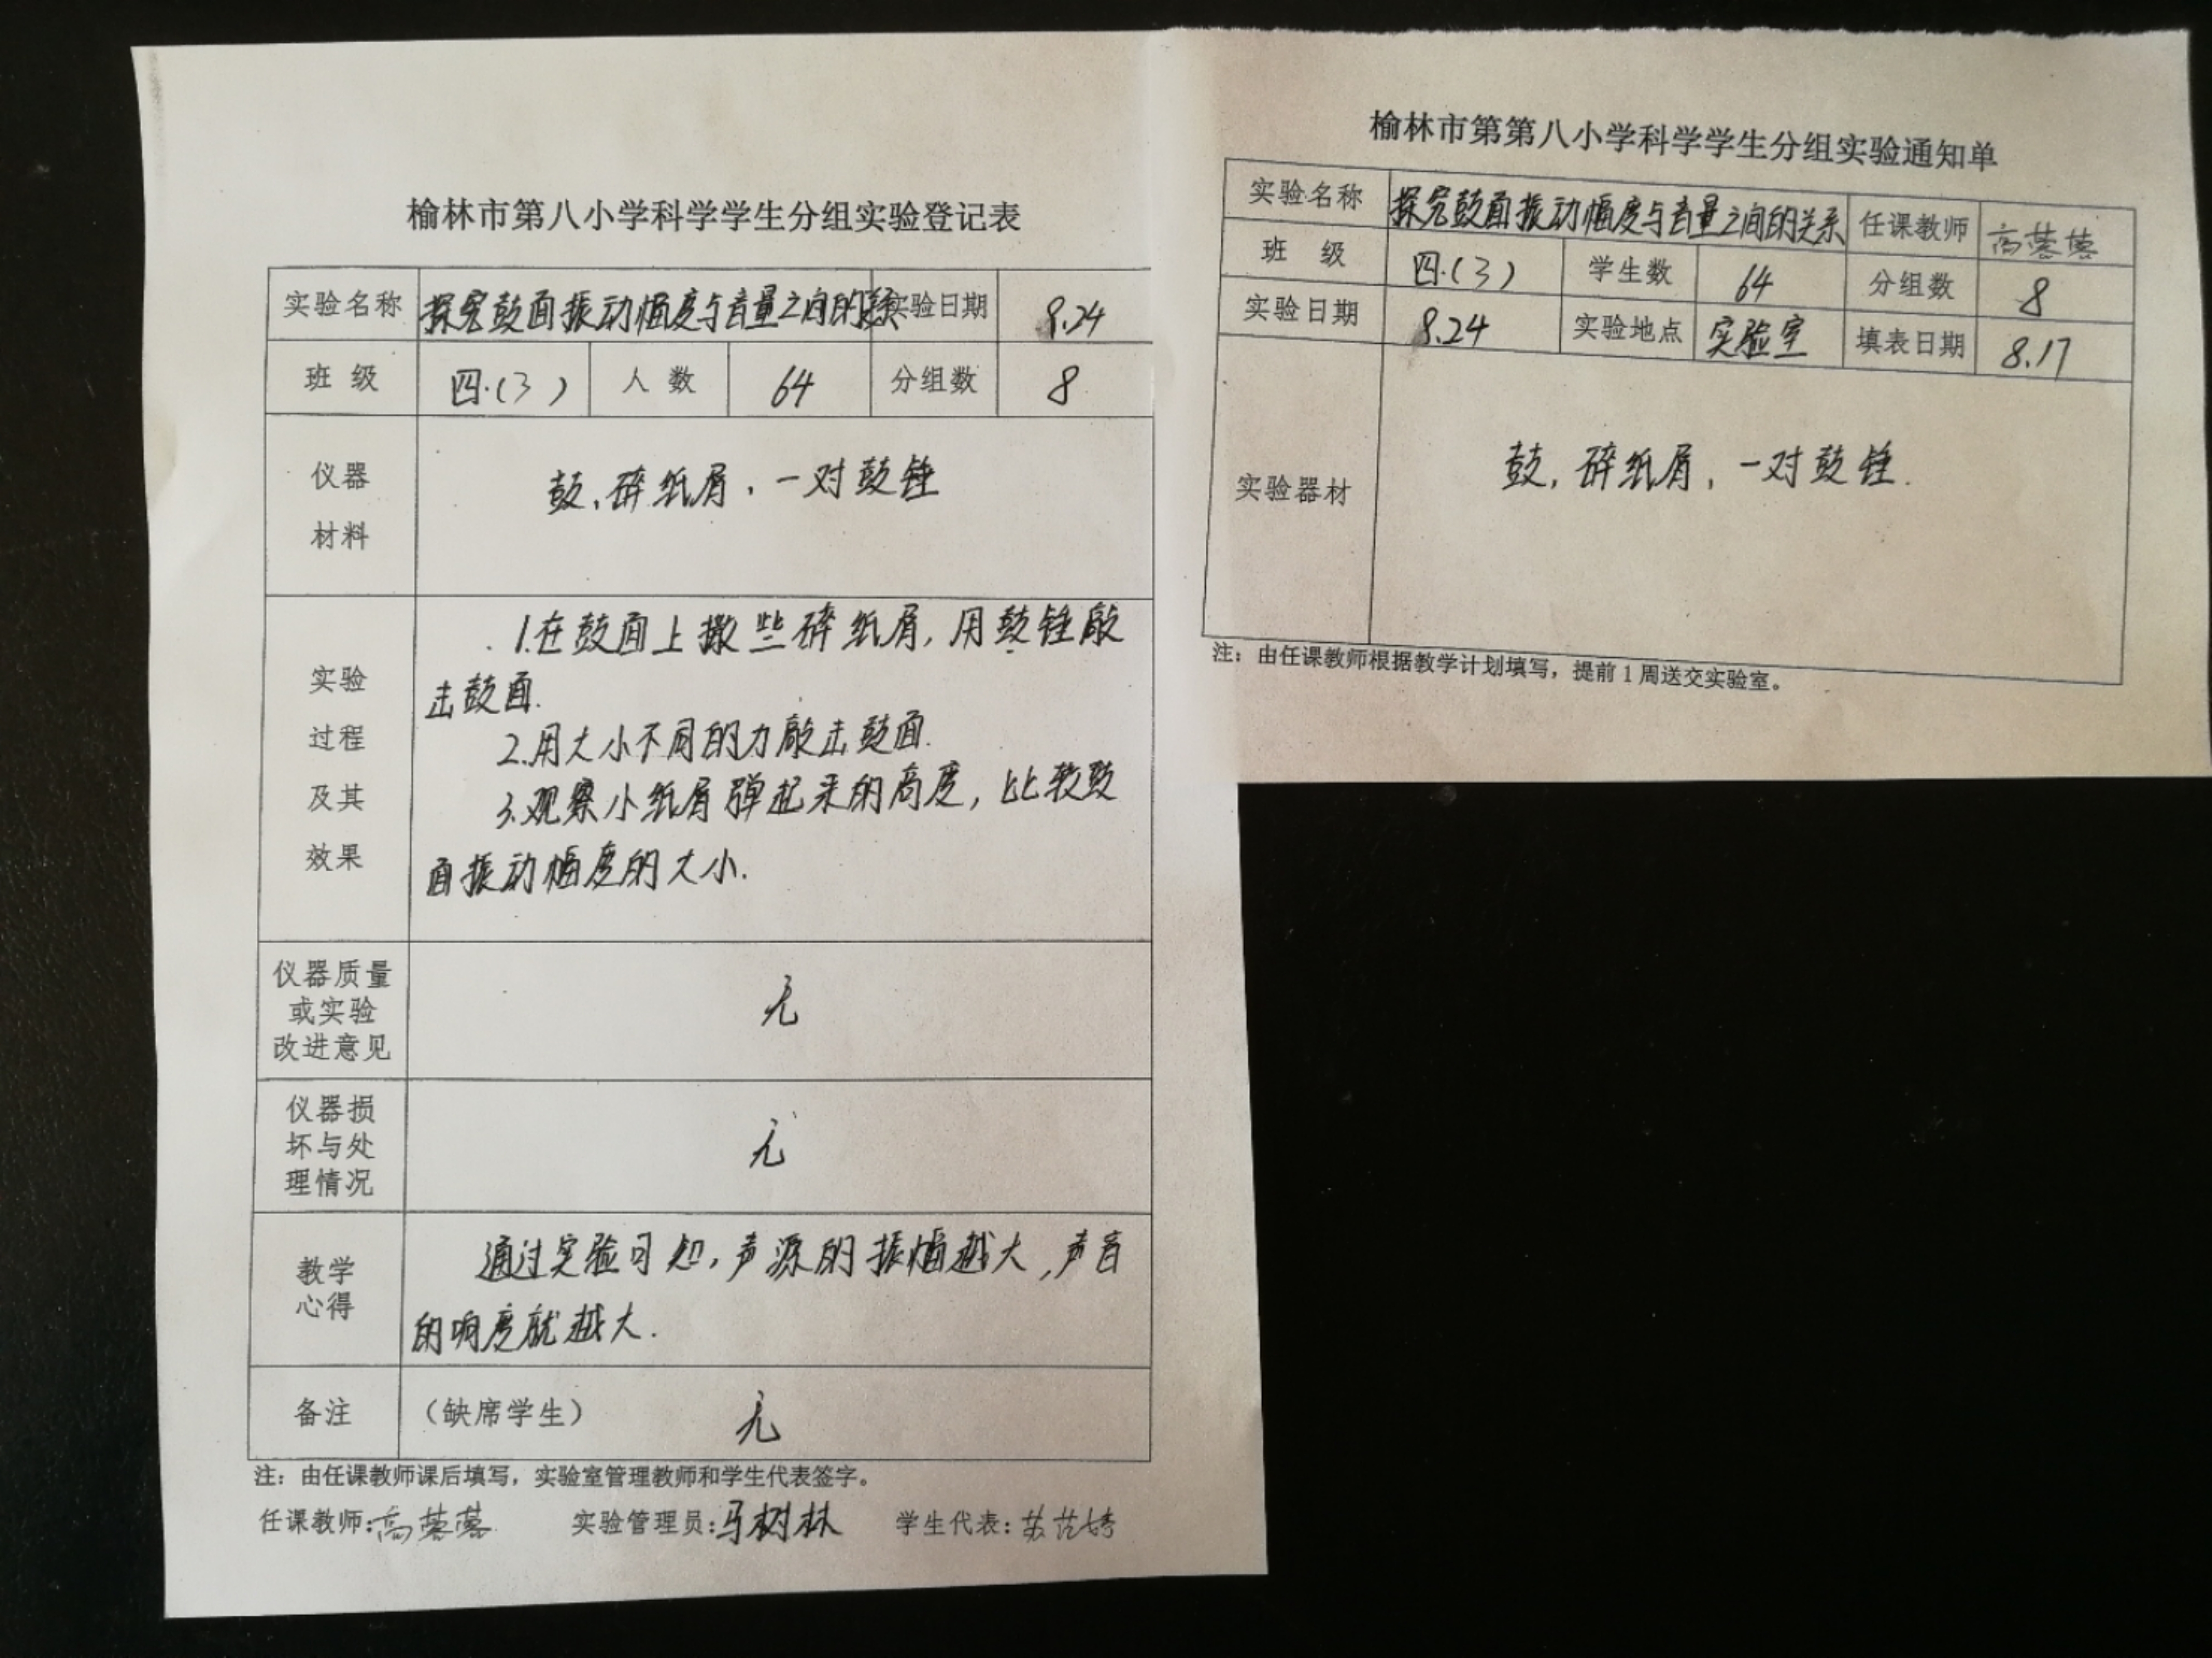 榆林市第八小学科学学生分组实验登记表
实验名称 探究鼓面振动幅度与音量之间的关系 实验日期 8.24
班 级 四.(3) 人 数 64 分组数 8
仪器
材料
鼓,碎纸屑,一对鼓锤
实验
过程
及其
效果
1.在鼓面上撒些碎纸屑,用鼓锤敲
击鼓面.
2.用大小不同的力敲击鼓面.
3.观察小纸屑弹起来的高度,比较鼓
面振动幅度的大小.
仪器质量
或实验
改进意见
无
仪器损
坏与处
理情况
无
教学
心得
通过实验可知,声源的振幅越大,声音
的响度就越大.
备注 (缺席学生) 无
注:由任课教师课后填写,实验室管理教师和学生代表签字。
任课教师:高蓉蓉 实验管理员:马树林 学生代表:
榆林市第第八小学科学学生分组实验通知单
实验名称 探究鼓面振动幅度与音量之间的关系 任课教师 高蓉蓉
班 级 四.(3) 学生数 64 分组数 8
实验日期 8.24 实验地点 实验室 填表日期 8.17
实验器材 鼓,碎纸屑,一对鼓锤.
注:由任课教师根据教学计划填写,提前1周送交实验室。